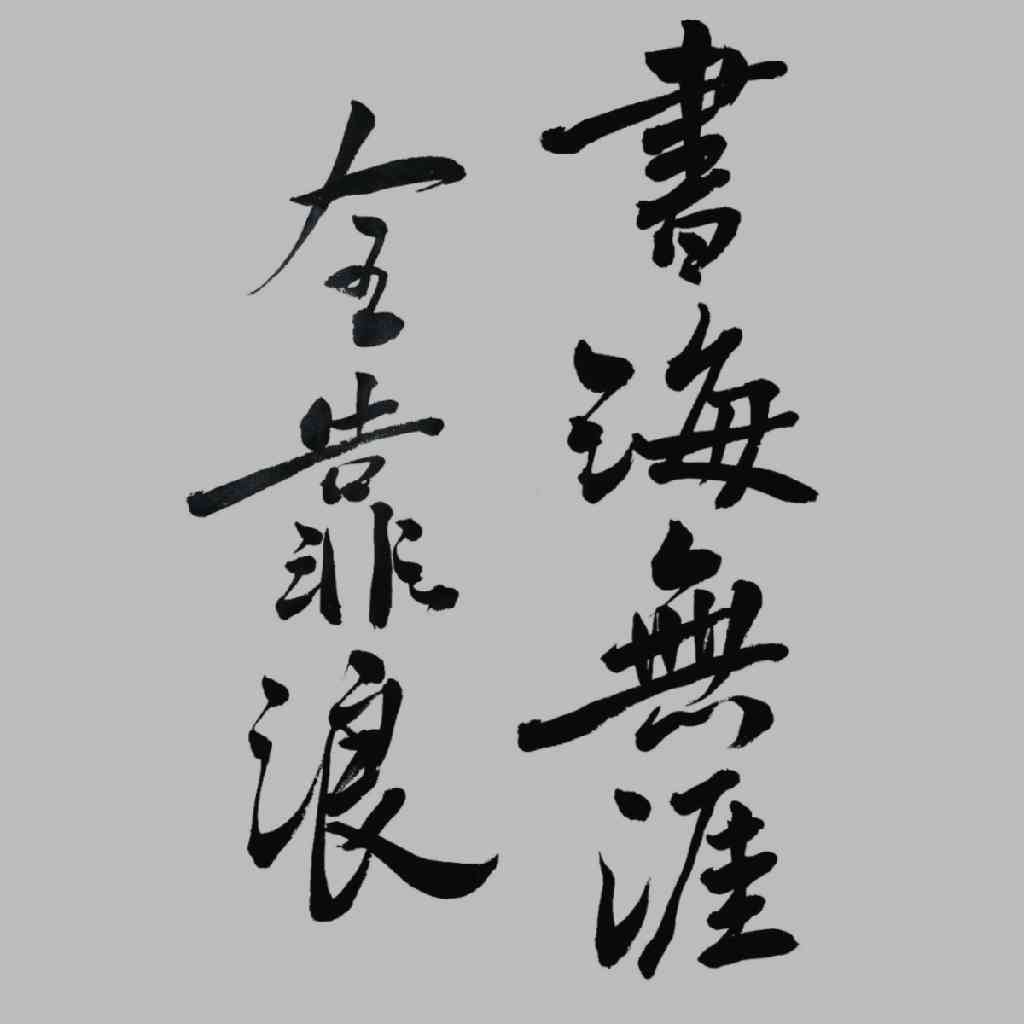 書海無涯
全靠浪